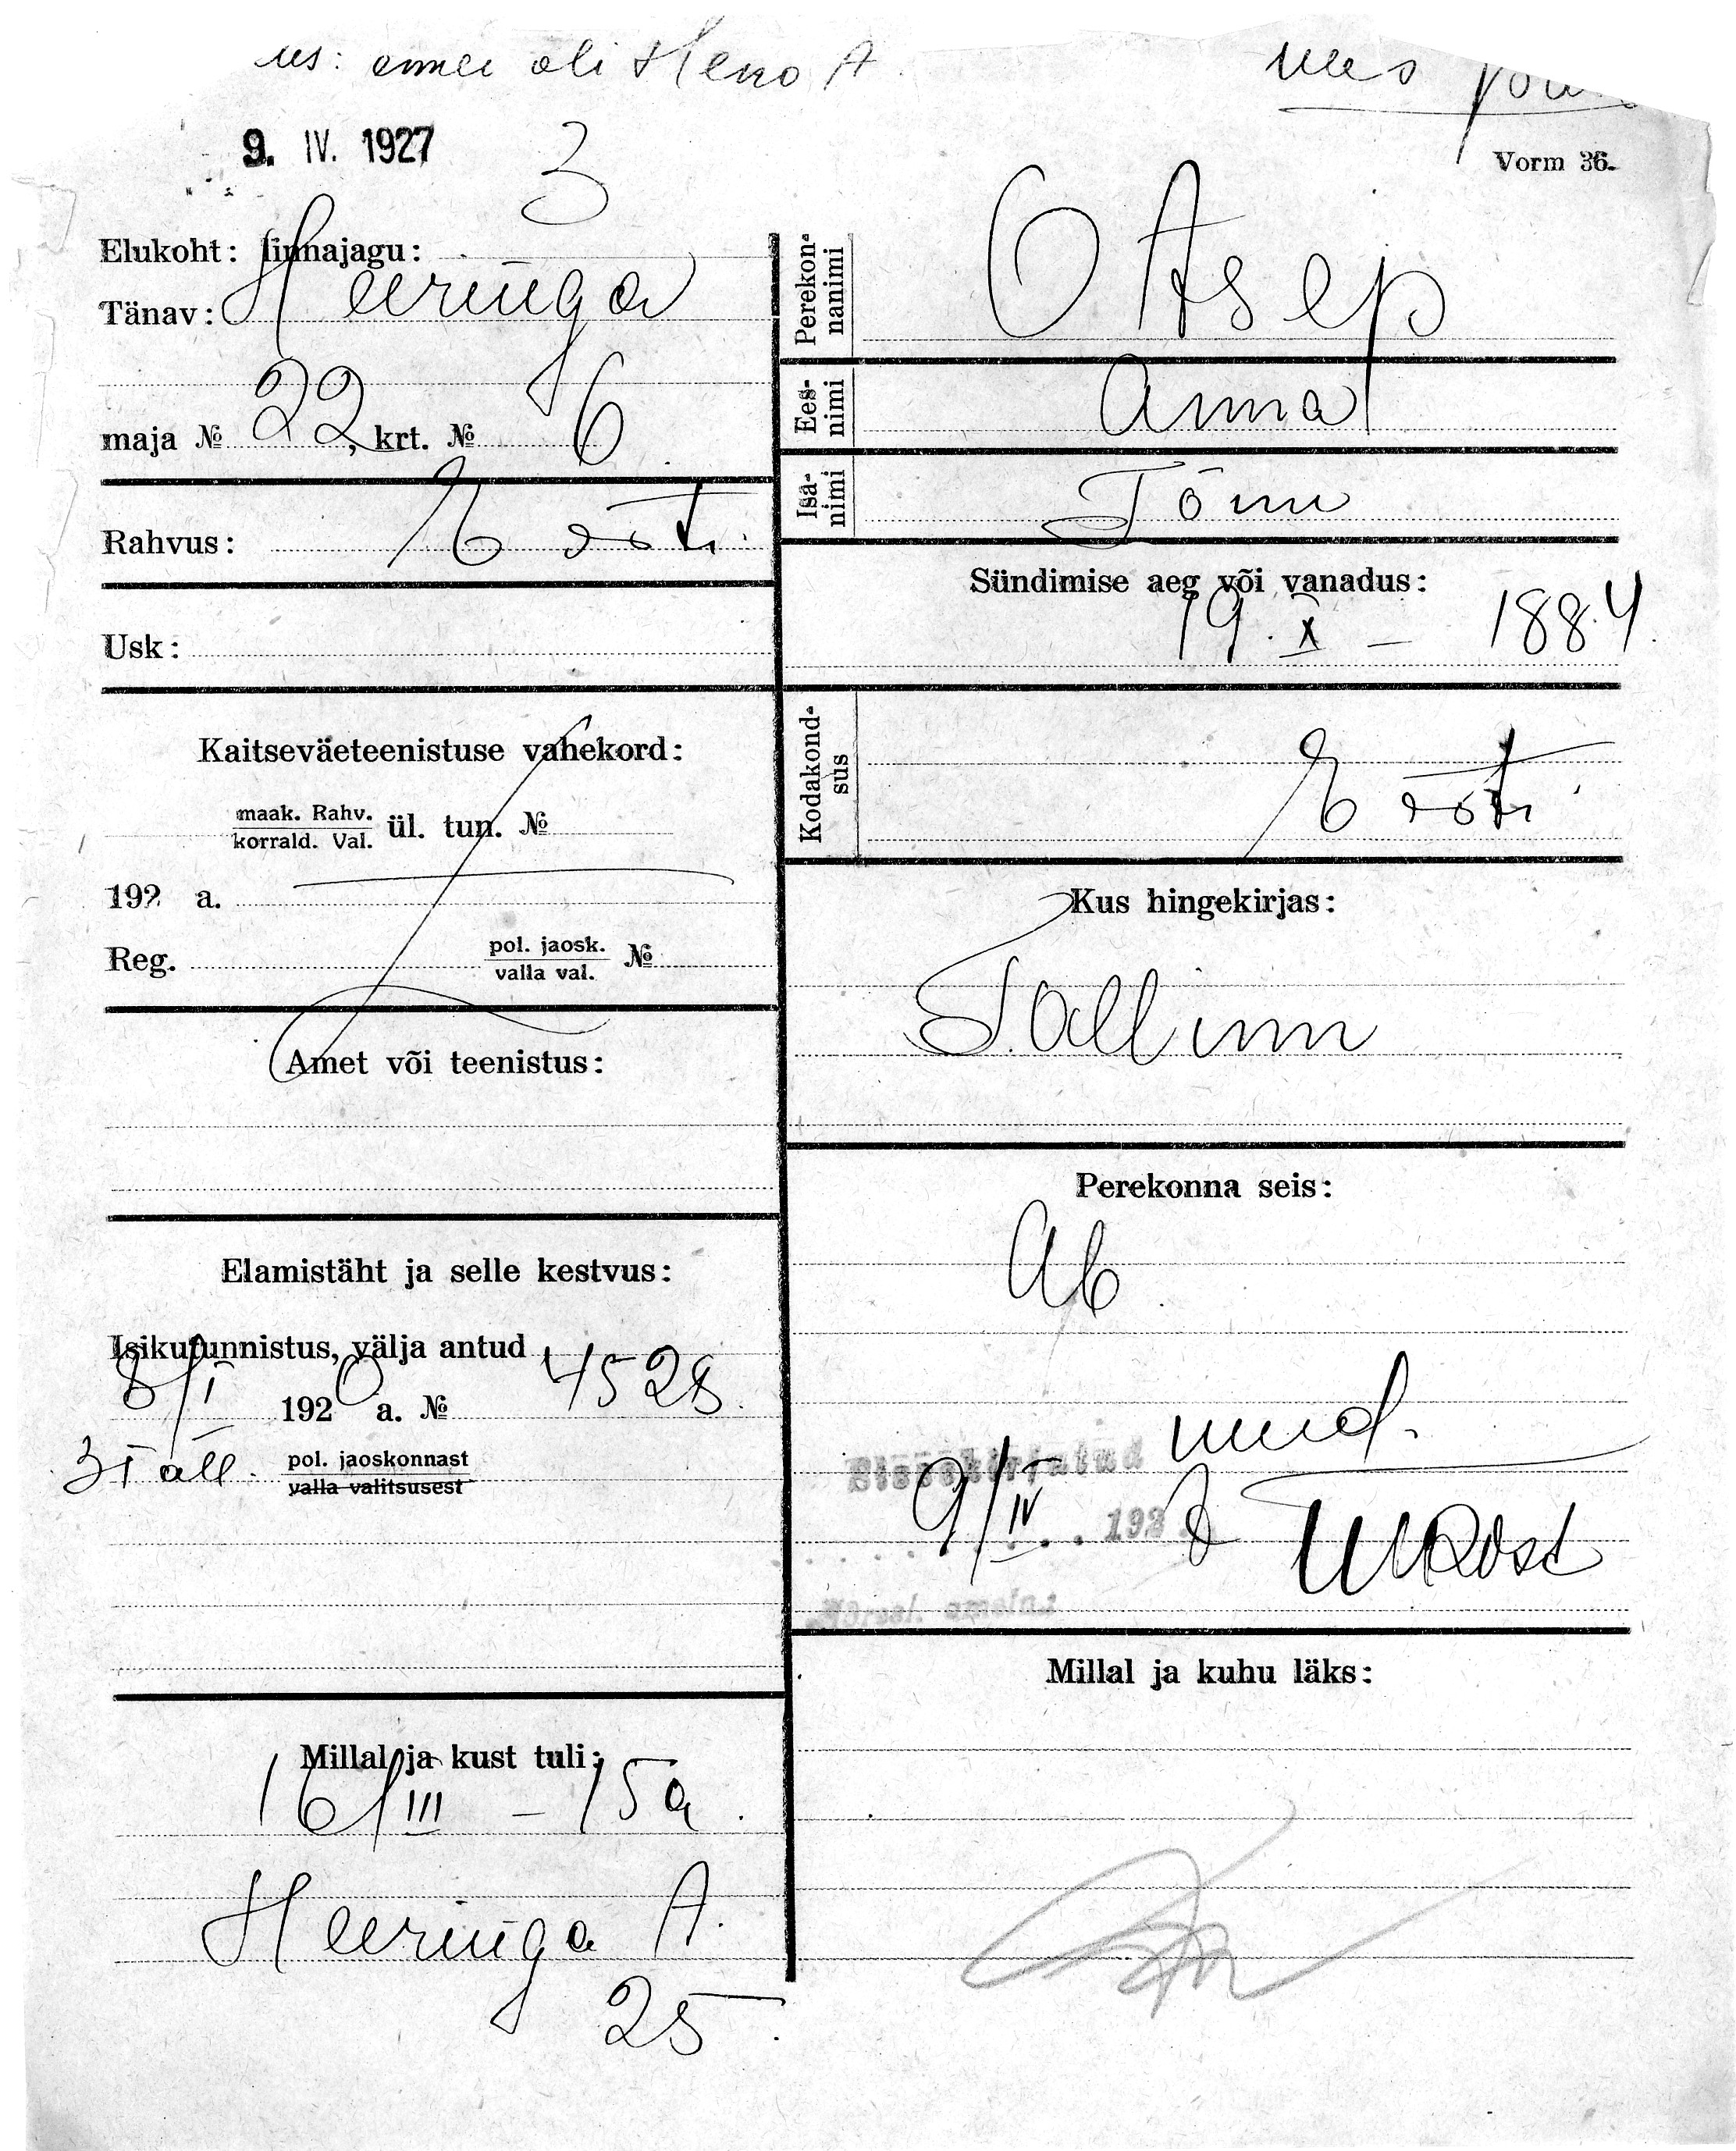 us: ennee oli Heno A.
mees
9. IV. 1927
3
Vorm 36.
Elukoht: linnajagu:
Tänav: Heeringa
maja № 22, krt. № 6
Rahvus: Eesti.
Usk:
Kaitseväeteenistuse vahekord:
maak. Rahv.
korrald. Val. ül. tun. №
192 a.
Reg. pol. jaosk.
valla val. №
Amet või teenistus:
Elamistäht ja selle kestvus:
Isikutunnistus, välja antud
8/I 1920 a. № 4528.
3 Tall. pol. jaoskonnast
valla valitsusest
Millal ja kust tuli:
16/III – 15 a.
Heeringa A.
25.
Perekon-
nanimi
Otsep
Ees-
nimi
Anna
Isa-
nimi
Tõnu
Sündimise aeg või vanadus:
19. X – 1884.
Kodakond-
sus
Eesti.
Kus hingekirjas:
Tallinn
Perekonna seis:
Ab.
Sissekirjutud
9/IV . . 192
Millal ja kuhu läks: